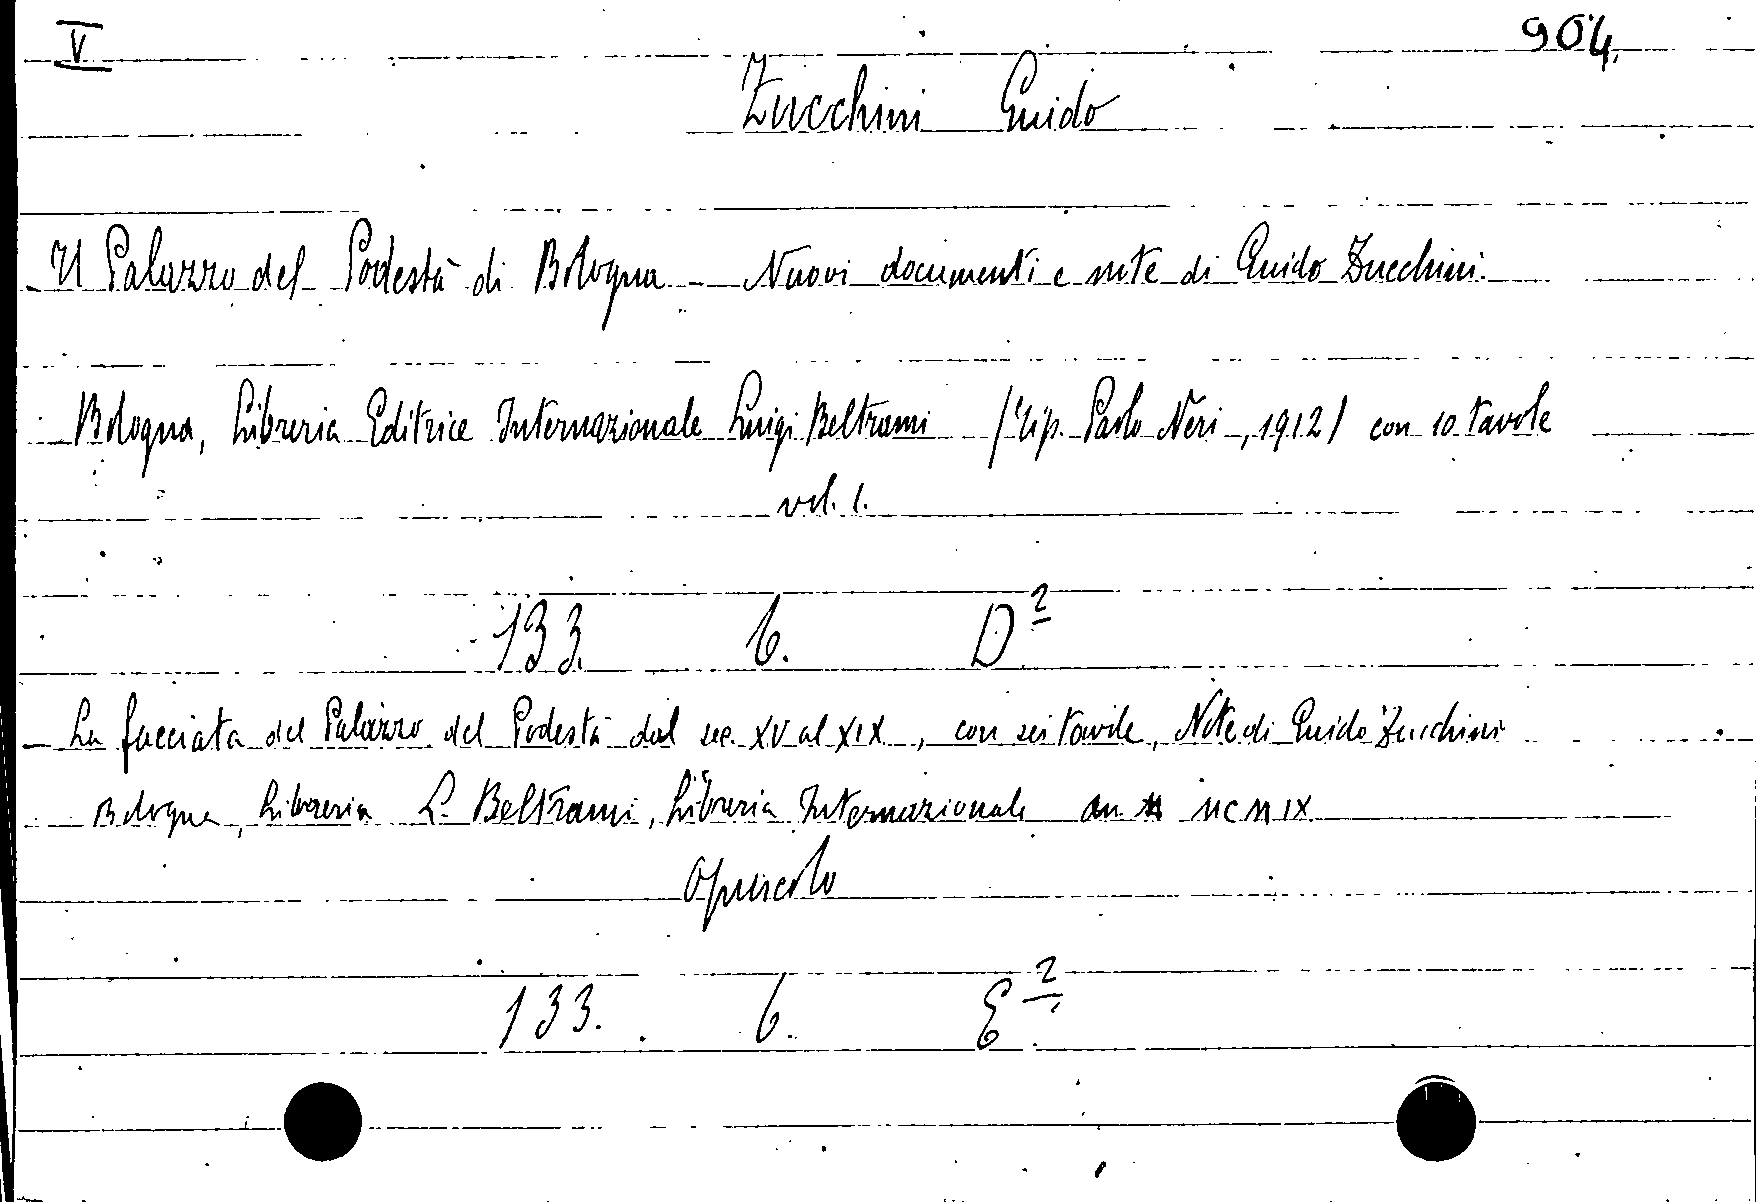 V 904
Zucchini Guido
Il Palazzo del Podestà di Bologna - Nuovi documenti e note di Guido Zucchini.
Bologna, Libreria Editrice Internazionale Luigi Beltrami (Tip. Paolo Neri, 1912) con 10 tavole
vol. 1.
133. 6. D2
La facciata del Palazzo del Podestà dal sec. XV al XIX, con sei tavole, Note di Guido Zucchini
Bologna, Libreria L. Beltrami, Libreria Internazionale MCMIX
Opuscolo
133. 6. E2